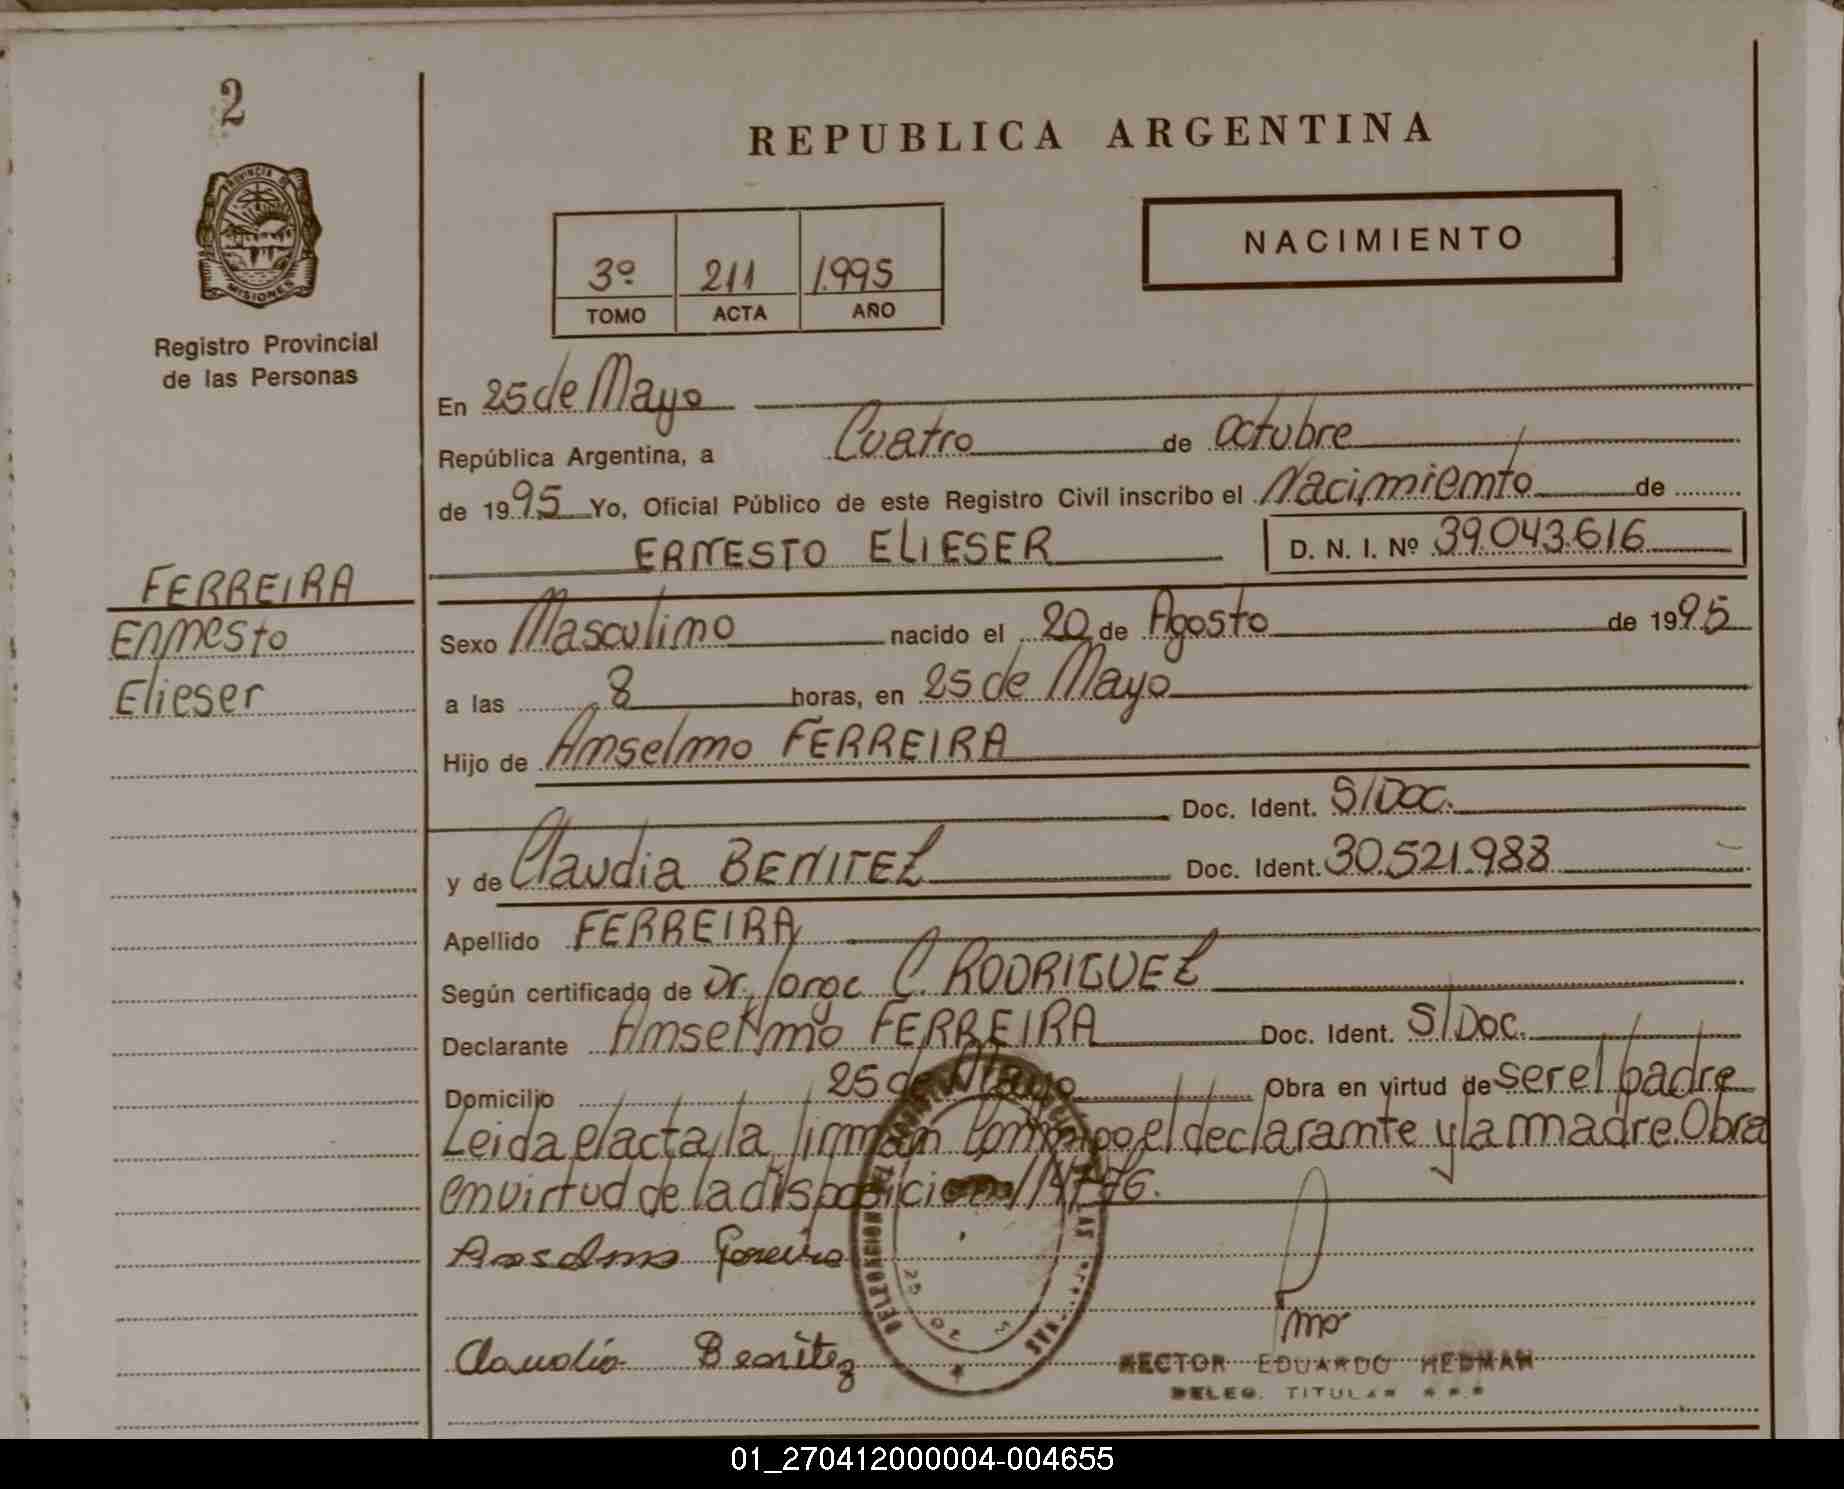 2
REPUBLICA ARGENTINA
PROVINCIA DE
MISIONES
Registro Provincial
de las Personas
3º 211 1.995
TOMO ACTA AÑO
NACIMIENTO
En 25 de Mayo
República Argentina, a Cuatro de octubre
de 1995 Yo, Oficial Público de este Registro Civil inscribo el Nacimiento de
ERNESTO ELIESER D. N. I. Nº 39.043.616
FERREIRA
Ernesto
Elieser
Sexo Masculino nacido el 20 de Agosto de 1995
a las 8 horas, en 25 de Mayo
Hijo de Anselmo FERREIRA
Doc. Ident. S/Doc.
y de Claudia BENITEZ Doc. Ident. 30.521.988
Apellido FERREIRA
Según certificado de Dr. Jorge C. RODRIGUEZ
Declarante Anselmo FERREIRA Doc. Ident. S/Doc.
Domicilio 25 de Mayo Obra en virtud de ser el padre
Leida el acta, la firman Conmigo, el declarante y la madre. Obra
en virtud de la disposicion
Anselmo Ferreira
Claudia Benitez
HECTOR EDUARDO HEDMAN
DELEG. TITULAR
01_270412000004-004655